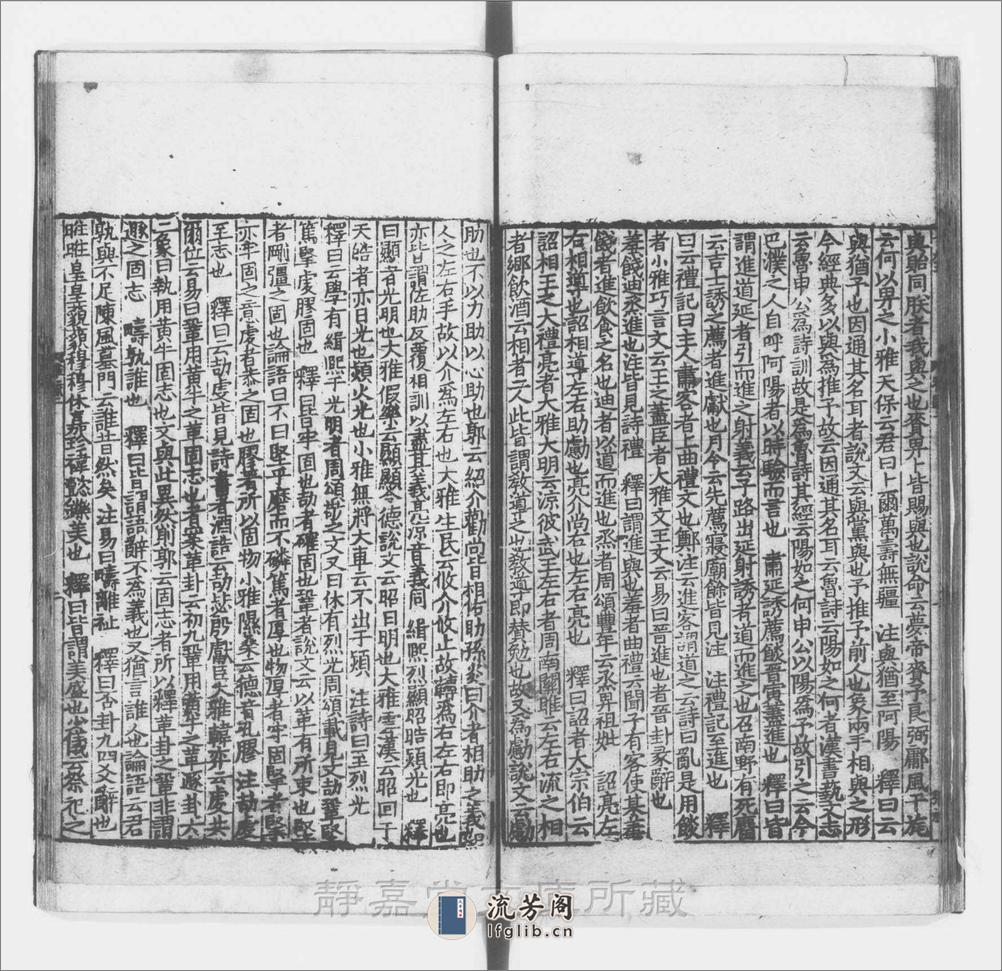 與貽同朕者我與之也賚畀卜皆賜與也說命云夢帝賚予良弼鄘風干旄
云何以畀之小雅天保云君曰卜爾萬壽無疆 注與猶至阿陽 釋曰云
與猶予也因通其名耳者說文云與黨與也予推予前人也象兩手相與之形
今經典多以與為推予故云因通其名耳云魯詩云陽如之何者漢書藝文志
云魯申公為詩訓故是為魯詩其經云陽如之何申公以陽為予故引之云今
巴濮之人自呼阿陽者以時驗而言也 肅延誘薦餤晉寅藎進也 釋曰皆
謂進道延者引而進之射義云子路出延射誘者道而進之也召南野有死麕
云吉士誘之薦者進獻也月今云先薦寢廟餘皆見注 注禮記至進也 釋
曰云禮記曰主人肅客者上曲禮文也鄭注云進客謂道之云詩曰亂是用餤
者小雅巧言文云王之藎臣者大雅文王文云易曰晉進也者晉卦彖辭也
羞餞迪烝進也注皆見詩禮 釋曰謂進與也羞者曲禮云聞子有客使某羞
餞者進飲食之名也迪者以道而進也烝者周頌豐年云烝畀祖妣 詔亮左
右相導也詔相導左右助勴也亮介尚右也左右亮也 釋曰詔者大宗伯云
詔相王之大禮亮者大雅大明云涼彼武王左右者周南關雎云左右流之相
者鄉飲酒云相者二人此皆謂教導之也教導即贊勉也故又為勴說文云勴
助也不以力助以心助也郭云紹介勸尚皆相佑助孫炎曰介者相助之義
人之左右手故以介為左右也大雅生民云攸介攸止故轉為右左右即亮也
亦皆謂佐助反覆相訓以盡其義亮涼音義同 緝熙烈顯昭晧熲光也 釋
曰顯者光明也大雅假樂云顯顯令德說文云昭日明也大雅雲漢云昭回于
天晧者亦日光也熲火光也小雅無將大車云不出于熲 注詩曰至烈光
釋曰云學有緝熙于光明者周頌敬之文又曰休有烈光周頌載見文劼鞏堅
篤掔虔膠固也 釋曰皆牢固也劼者確固也鞏者說文云以韋有所束也堅
者剛彊之固也論語曰不曰堅乎磨而不磷篤者厚也物厚者牢固掔者堅
亦牢固之意虔者恭之固也膠者所以固物小雅隰桑云德音孔膠 注劼虔
至志也 釋曰云劼虔皆見詩書者酒誥云劼毖殷獻臣大雅韓奕云虔共
爾位云易曰鞏用黃牛之革固志也者案革卦云初九鞏用黃牛之革遯卦六
二象曰執用黃牛固志也文與此異然則郭云固志者所以釋革卦之鞏非謂
遯之固志 疇孰誰也 釋曰皆謂語辭不為義也又猶言誰人也論語云君
孰與不足陳風墓門云誰昔然矣注易曰疇離祉 釋曰否卦九四爻辭也
暀暀皇皇藐藐穆穆休嘉珍褘懿鑠美也 釋曰皆謂美盛也少儀云祭祀之
靜嘉堂文庫所藏
流芳阁
lfglib.cn